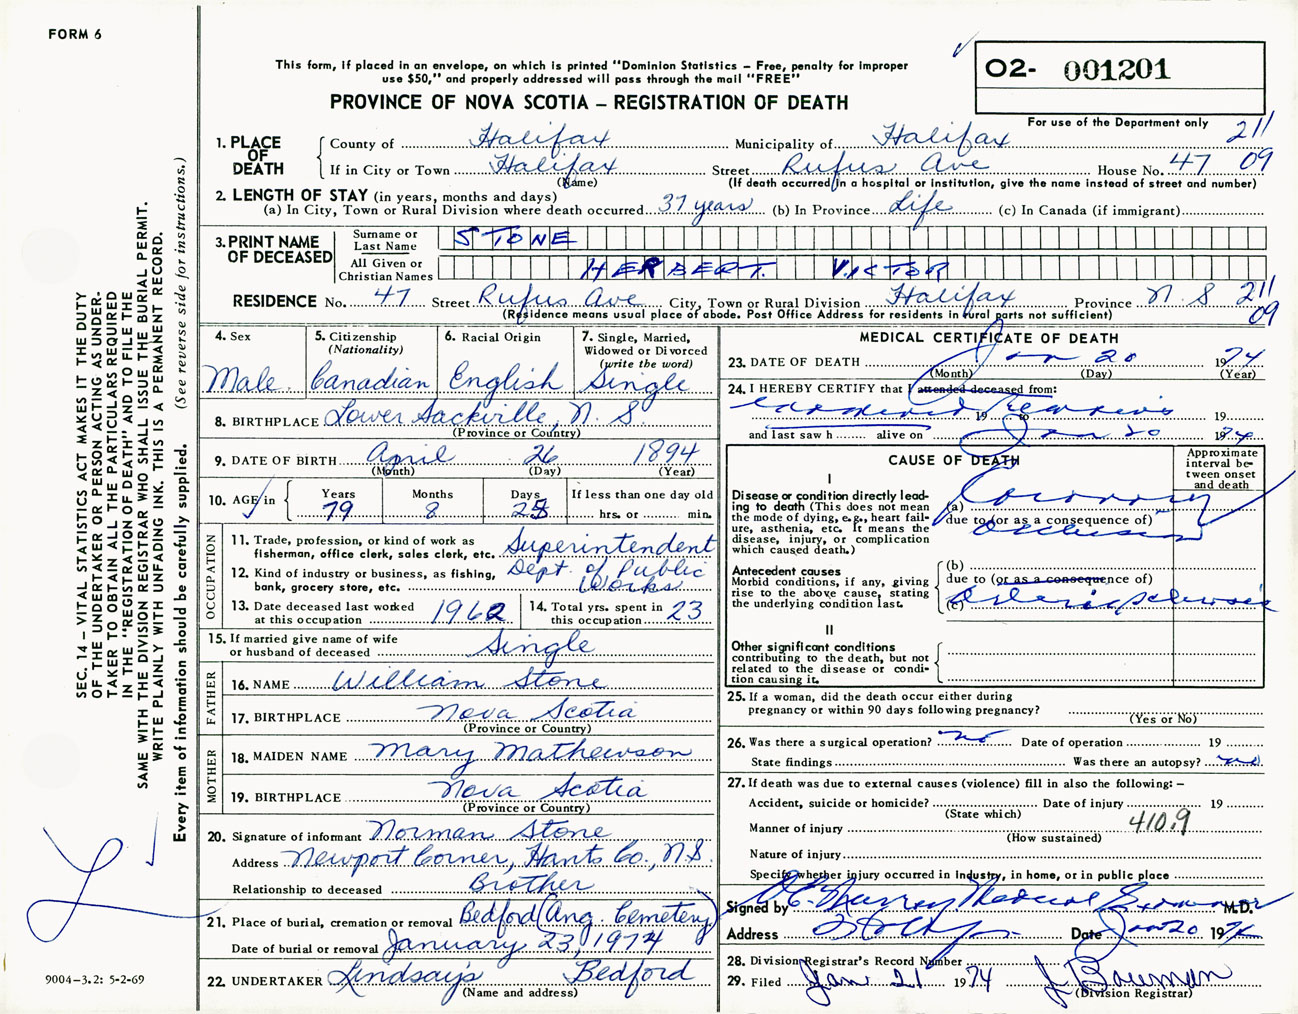 FORM 6
This form, if placed in an envelope, on which is printed "Dominion Statistics – Free, penalty for improper
use $50," and properly addressed will pass through the mail "FREE"
PROVINCE OF NOVA SCOTIA – REGISTRATION OF DEATH
02- 001201
For use of the Department only
211
09
1. PLACE OF DEATH
County of Halifax Municipality of Halifax
If in City or Town Halifax Street Rufus Ave House No. 47
(Name) (If death occurred in a hospital or institution, give the name instead of street and number)
2. LENGTH OF STAY (in years, months and days)
(a) In City, Town or Rural Division where death occurred 37 years (b) In Province Life (c) In Canada (if immigrant)
3. PRINT NAME OF DECEASED
Surname or Last Name STONE
All Given or Christian Names HERBERT VICTOR
RESIDENCE No. 47 Street Rufus Ave City, Town or Rural Division Halifax Province N.S 211
(Residence means usual place of abode. Post Office Address for residents in rural parts not sufficient) 09
4. Sex
Male
5. Citizenship (Nationality)
Canadian
6. Racial Origin
English
7. Single, Married, Widowed or Divorced (write the word)
Single
8. BIRTHPLACE Lower Sackville, N. S.
(Province or Country)
9. DATE OF BIRTH April 26 1894
(Month) (Day) (Year)
10. AGE in Years 79 Months 8 Days If less than one day old hrs. or min.
OCCUPATION
11. Trade, profession, or kind of work as
fisherman, office clerk, sales clerk, etc. Superintendent
12. Kind of industry or business, as fishing,
bank, grocery store, etc. Dept. of Public Works
13. Date deceased last worked
at this occupation 1962
14. Total yrs. spent in
this occupation 23
15. If married give name of wife
or husband of deceased Single
FATHER
16. NAME William Stone
17. BIRTHPLACE Nova Scotia
(Province or Country)
MOTHER
18. MAIDEN NAME Mary Mathewson
19. BIRTHPLACE Nova Scotia
(Province or Country)
20. Signature of informant Norman Stone
Address Newport Corner, Hants Co., N.S.
Relationship to deceased Brother
21. Place of burial, cremation or removal Bedford (Ang. Cemetery)
Date of burial or removal January 23, 1974
22. UNDERTAKER Lindsay's Bedford
(Name and address)
MEDICAL CERTIFICATE OF DEATH
23. DATE OF DEATH Jan 20 1974
(Month) (Day) (Year)
24. I HEREBY CERTIFY that I attended deceased from:
examined remains 19 to 19
and last saw h alive on Jan 20 1974
CAUSE OF DEATH
Approximate interval between onset and death
I
Disease or condition directly lead-
ing to death (This does not mean
the mode of dying, e.g., heart fail-
ure, asthenia, etc. It means the
disease, injury, or complication
which caused death.)
(a) Coronary
due to (or as a consequence of)
occlusion
Antecedent causes
Morbid conditions, if any, giving
rise to the above cause, stating
the underlying condition last.
(b)
due to (or as a consequence of)
(c)
II
Other significant conditions
contributing to the death, but not
related to the disease or condi-
tion causing it.
25. If a woman, did the death occur either during
pregnancy or within 90 days following pregnancy?
(Yes or No)
26. Was there a surgical operation? no Date of operation 19
State findings Was there an autopsy? no
27. If death was due to external causes (violence) fill in also the following: –
Accident, suicide or homicide? Date of injury 19
(State which)
Manner of injury 410.9
(How sustained)
Nature of injury
Specify whether injury occurred in industry, in home, or in public place
Signed by Medical Examiner M.D.
Address Date Jan 20 1974
28. Division Registrar's Record Number
29. Filed Jan 21 1974 J Bowman
(Division Registrar)
SEC. 14 – VITAL STATISTICS ACT MAKES IT THE DUTY
OF THE UNDERTAKER OR PERSON ACTING AS UNDER-
TAKER TO OBTAIN ALL THE PARTICULARS REQUIRED
IN THE "REGISTRATION OF DEATH" AND TO FILE THE
SAME WITH THE DIVISION REGISTRAR WHO SHALL ISSUE THE BURIAL PERMIT.
WRITE PLAINLY WITH UNFADING INK. THIS IS A PERMANENT RECORD.
Every item of Information should be carefully supplied. (See reverse side for instructions.)
9004–3.2: 5-2-69